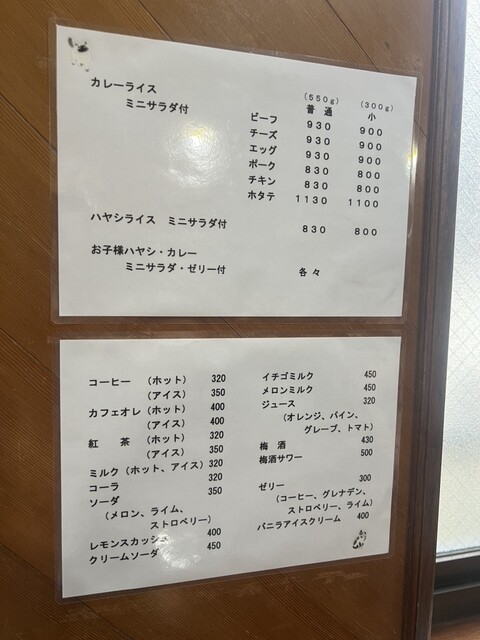 カレーライス
ミニサラダ付
(550g) (300g)
普通 小
ビーフ 930 900
チーズ 930 900
エッグ 930 900
ポーク 830 800
チキン 830 800
ホタテ 1130 1100
ハヤシライス ミニサラダ付 830 800
お子様ハヤシ・カレー
ミニサラダ・ゼリー付 各々
コーヒー (ホット) 320
(アイス) 350
カフェオレ (ホット) 400
(アイス) 400
紅 茶 (ホット) 320
(アイス) 350
ミルク (ホット、アイス) 320
コーラ 320
ソーダ 350
(メロン、ライム、
ストロベリー)
レモンスカッシュ 400
クリームソーダ 450
イチゴミルク 450
メロンミルク 450
ジュース 320
(オレンジ、パイン、
グレープ、トマト)
梅 酒 430
梅酒サワー 500
ゼリー 300
(コーヒー、グレナデン、
ストロベリー、ライム)
バニラアイスクリーム 400